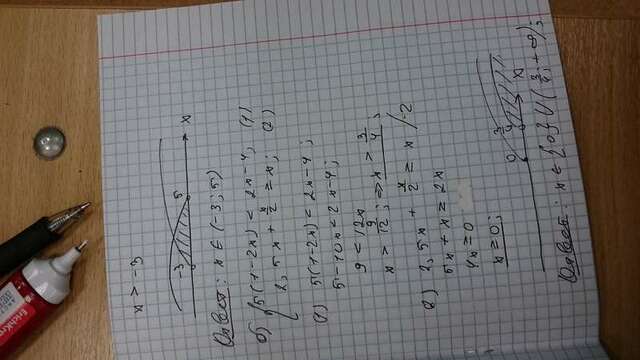 x > -3
-3 5 x
Ответ: x ∈ (-3; 5)
б) { 5(1-2x) < 2x-4, (1)
2,5x + x/2 ≥ x; (2)
(1) 5(1-2x) < 2x-4;
5-10x < 2x-4;
9 < 12x
x > 9/12; => x > 3/4;
2) 2,5x + x/2 ≥ x /·2
5x + x ≥ 2x
4x ≥ 0
x ≥ 0;
0 3/4 x
Ответ: x ∈ {0} ∪ (3/4; +∞);